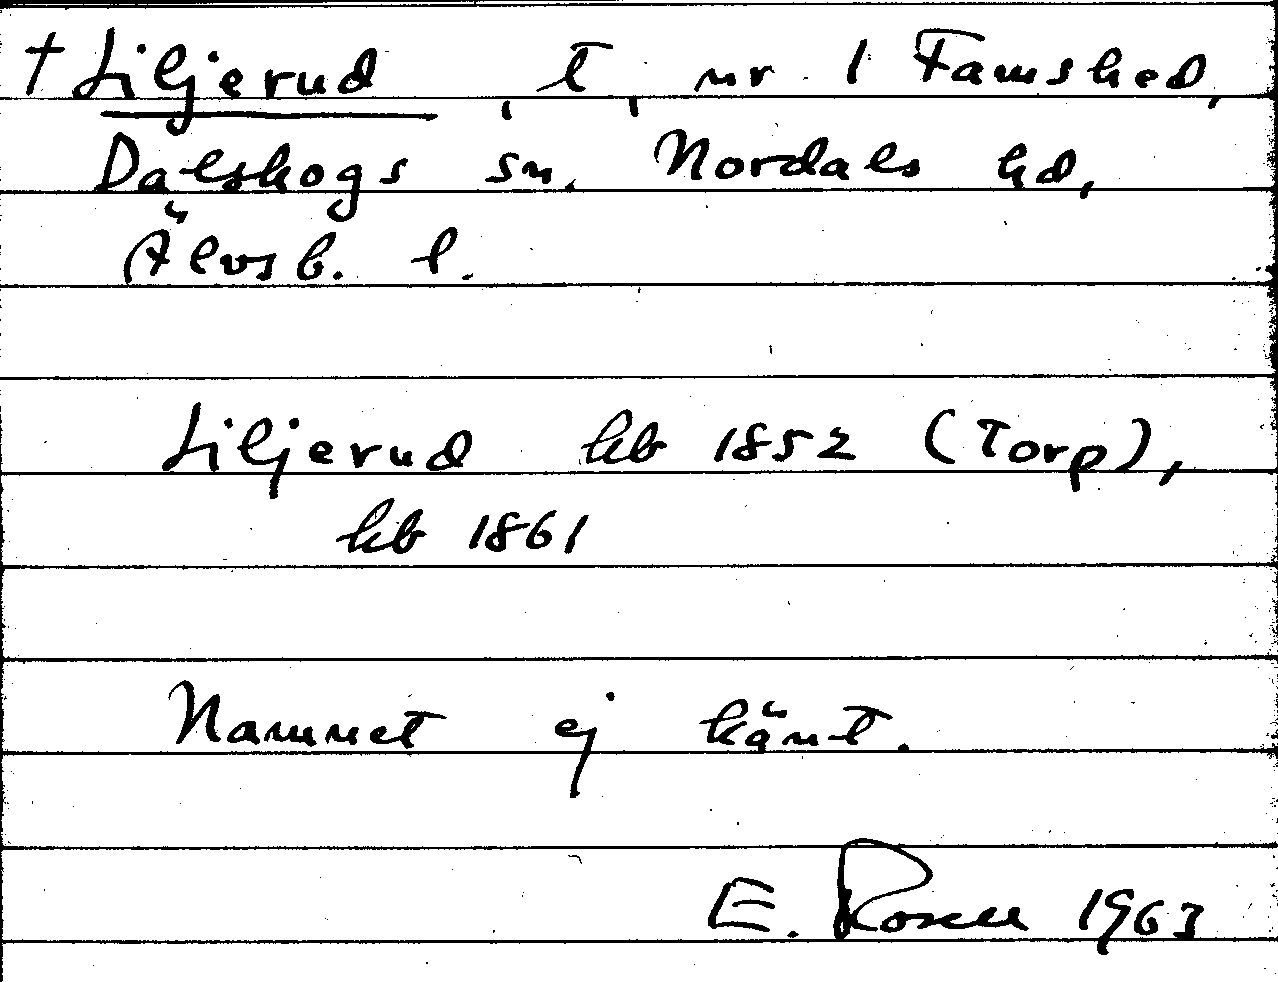 † Liljerud, t, nr 1 Famshed,
Dalskogs sn. Nordals hd,
Älvsb. l.
Liljerud hb 1852 (Torp),
hb 1861
Namnet ej känt.
E. Rosell 1963